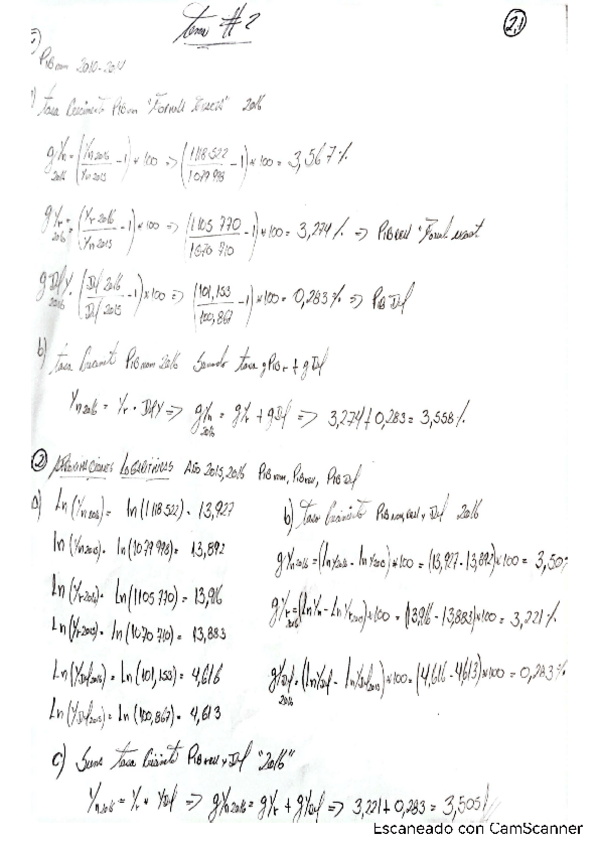 Tema #2
2,1
PIBnom 2010-2014
Tasa Crecimiento PIBnom "Formula Exacta" 2016
gYn 2016 = (Yn 2016 / Yn 2015 - 1) * 100 => (1118 522 / 1079 998 - 1) * 100 = 3,567%
gYr 2016 = (Yr 2016 / Yr 2015 - 1) * 100 => (1105 770 / 1070 710 - 1) * 100 = 3,274% => PIBreal "Formul exact
gDef Y. 2016 (Def 2016 / Def 2015 - 1) * 100 => (101,153 / 100,867 - 1) * 100 = 0,283% => PIB Def
b) Tasa Crecimiento PIBnom 2016 Sumando tasa gPIBr + gDef
Yn 2016 = Yr • Def Y => gYn 2016 = gYr + gDef => 3,274 + 0,283 = 3,558%.
② Aproximaciones Logaritmicas Año 2015, 2016 PIBnom, PIBreal, PIBDef
a) Ln (Yn 2016) = ln (1118 522) = 13,927
ln (Yn 2015) = ln (1079 998) = 13,892
ln (Yr 2016) = Ln (1105 770) = 13,916
Ln (Yr 2015) = ln (1070 710) = 13,883
Ln (YDef 2016) = Ln (101,153) = 4,616
Ln (YDef 2015) = Ln (100,867) = 4,613
b) Tasa Crecimiento PIBnom, real y Def 2016
gYn 2016 = (ln Yn 2016 - ln Yn 2015) * 100 = (13,927 - 13,892) * 100 = 3,50
gYr 2016 = (Ln Yr - Ln Yr 2015) * 100 = (13,916 - 13,883) * 100 = 3,221%
gYDef 2016 = (ln YDef - ln YDef 2015) * 100 = (4,616 - 4,613) * 100 = 0,283%
c) Sume Tasa Crecimiento PIBreal y Def "2016"
Yn 2016 = Yr * YDef => gYn 2016 = gYr + gYDef => 3,221 + 0,283 = 3,505%
Escaneado con CamScanner